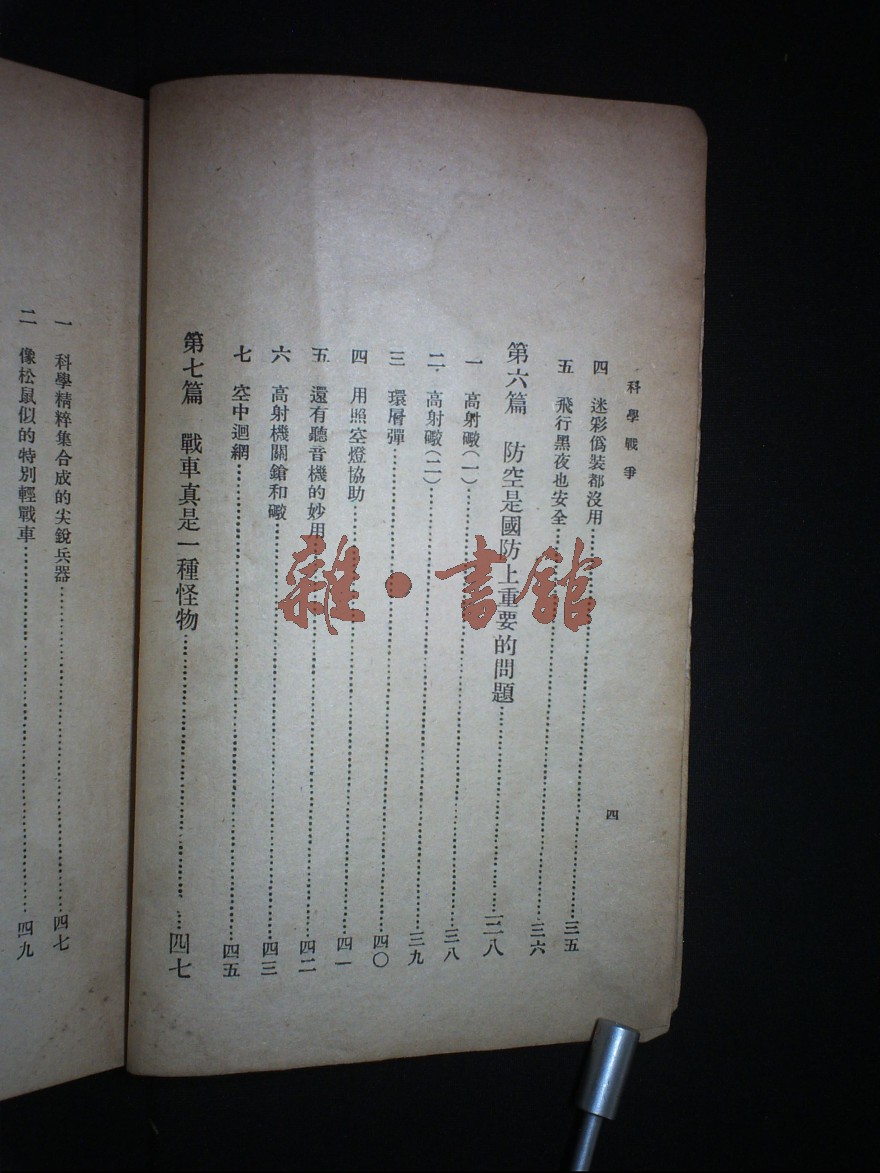 科學戰爭
四
四 迷彩僞裝都沒用……三五
五 飛行黑夜也安全……三六
第六篇 防空是國防上重要的問題……三八
一 高射礮(一)……三八
二 高射礮(二)……三九
三 環層彈……四〇
四 用照空燈協助……四一
五 還有聽音機的妙用……四二
六 高射機關鎗和礮……四三
七 空中迴網……四五
第七篇 戰車真是一種怪物……四七
一 科學精粹集合成的尖銳兵器……四七
二 像松鼠似的特別輕戰車……四九
雜·書館